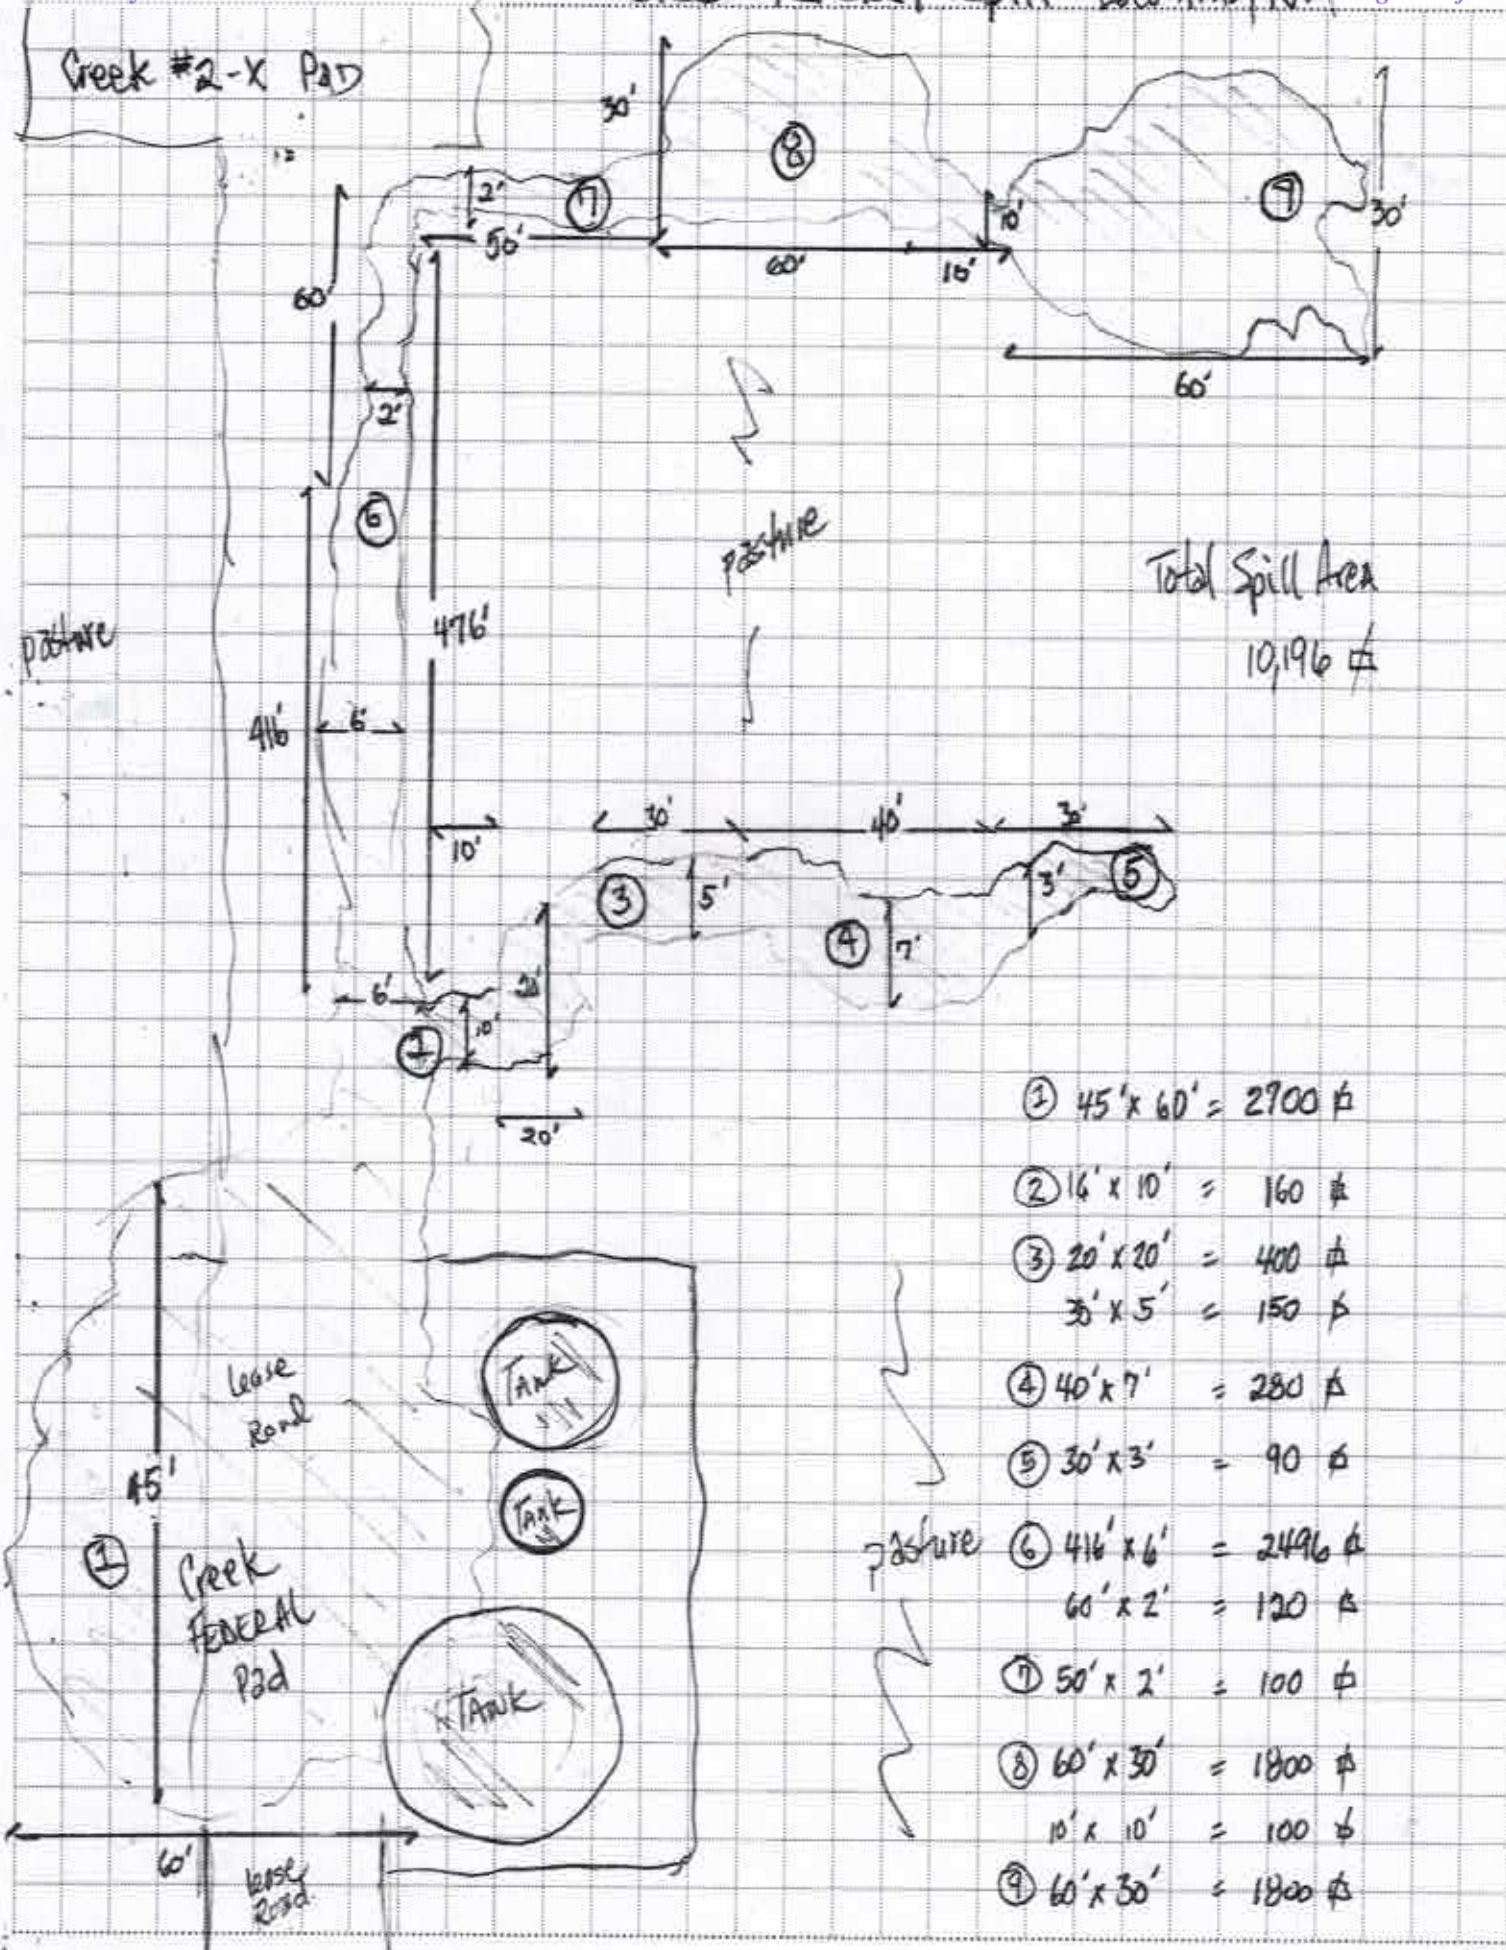 Creek #2-X PAD
30'
⑧
2'
⑦
⑨
10'
30'
50'
60'
10'
60'
60'
2'
⑥
pasture
Total Spill Area
10,196 ⏍
476'
pasture
416'
6'
10'
30'
40'
30'
③
5'
3'
⑤
④
7'
20'
6'
10'
②
20'
① 45' x 60' = 2700 ⏍
② 16' x 10' = 160 ⏍
③ 20' x 20' = 400 ⏍
30' x 5' = 150 ⏍
④ 40' x 7' = 280 ⏍
⑤ 30' x 3' = 90 ⏍
pasture
⑥ 416' x 6' = 2496 ⏍
60' x 2' = 120 ⏍
⑦ 50' x 2' = 100 ⏍
⑧ 60' x 30' = 1800 ⏍
10' x 10' = 100 ⏍
⑨ 60' x 30' = 1800 ⏍
Lease
Road
TANK
45'
TANK
①
Creek
FEDERAL
Pad
TANK
60'
Lease
Road